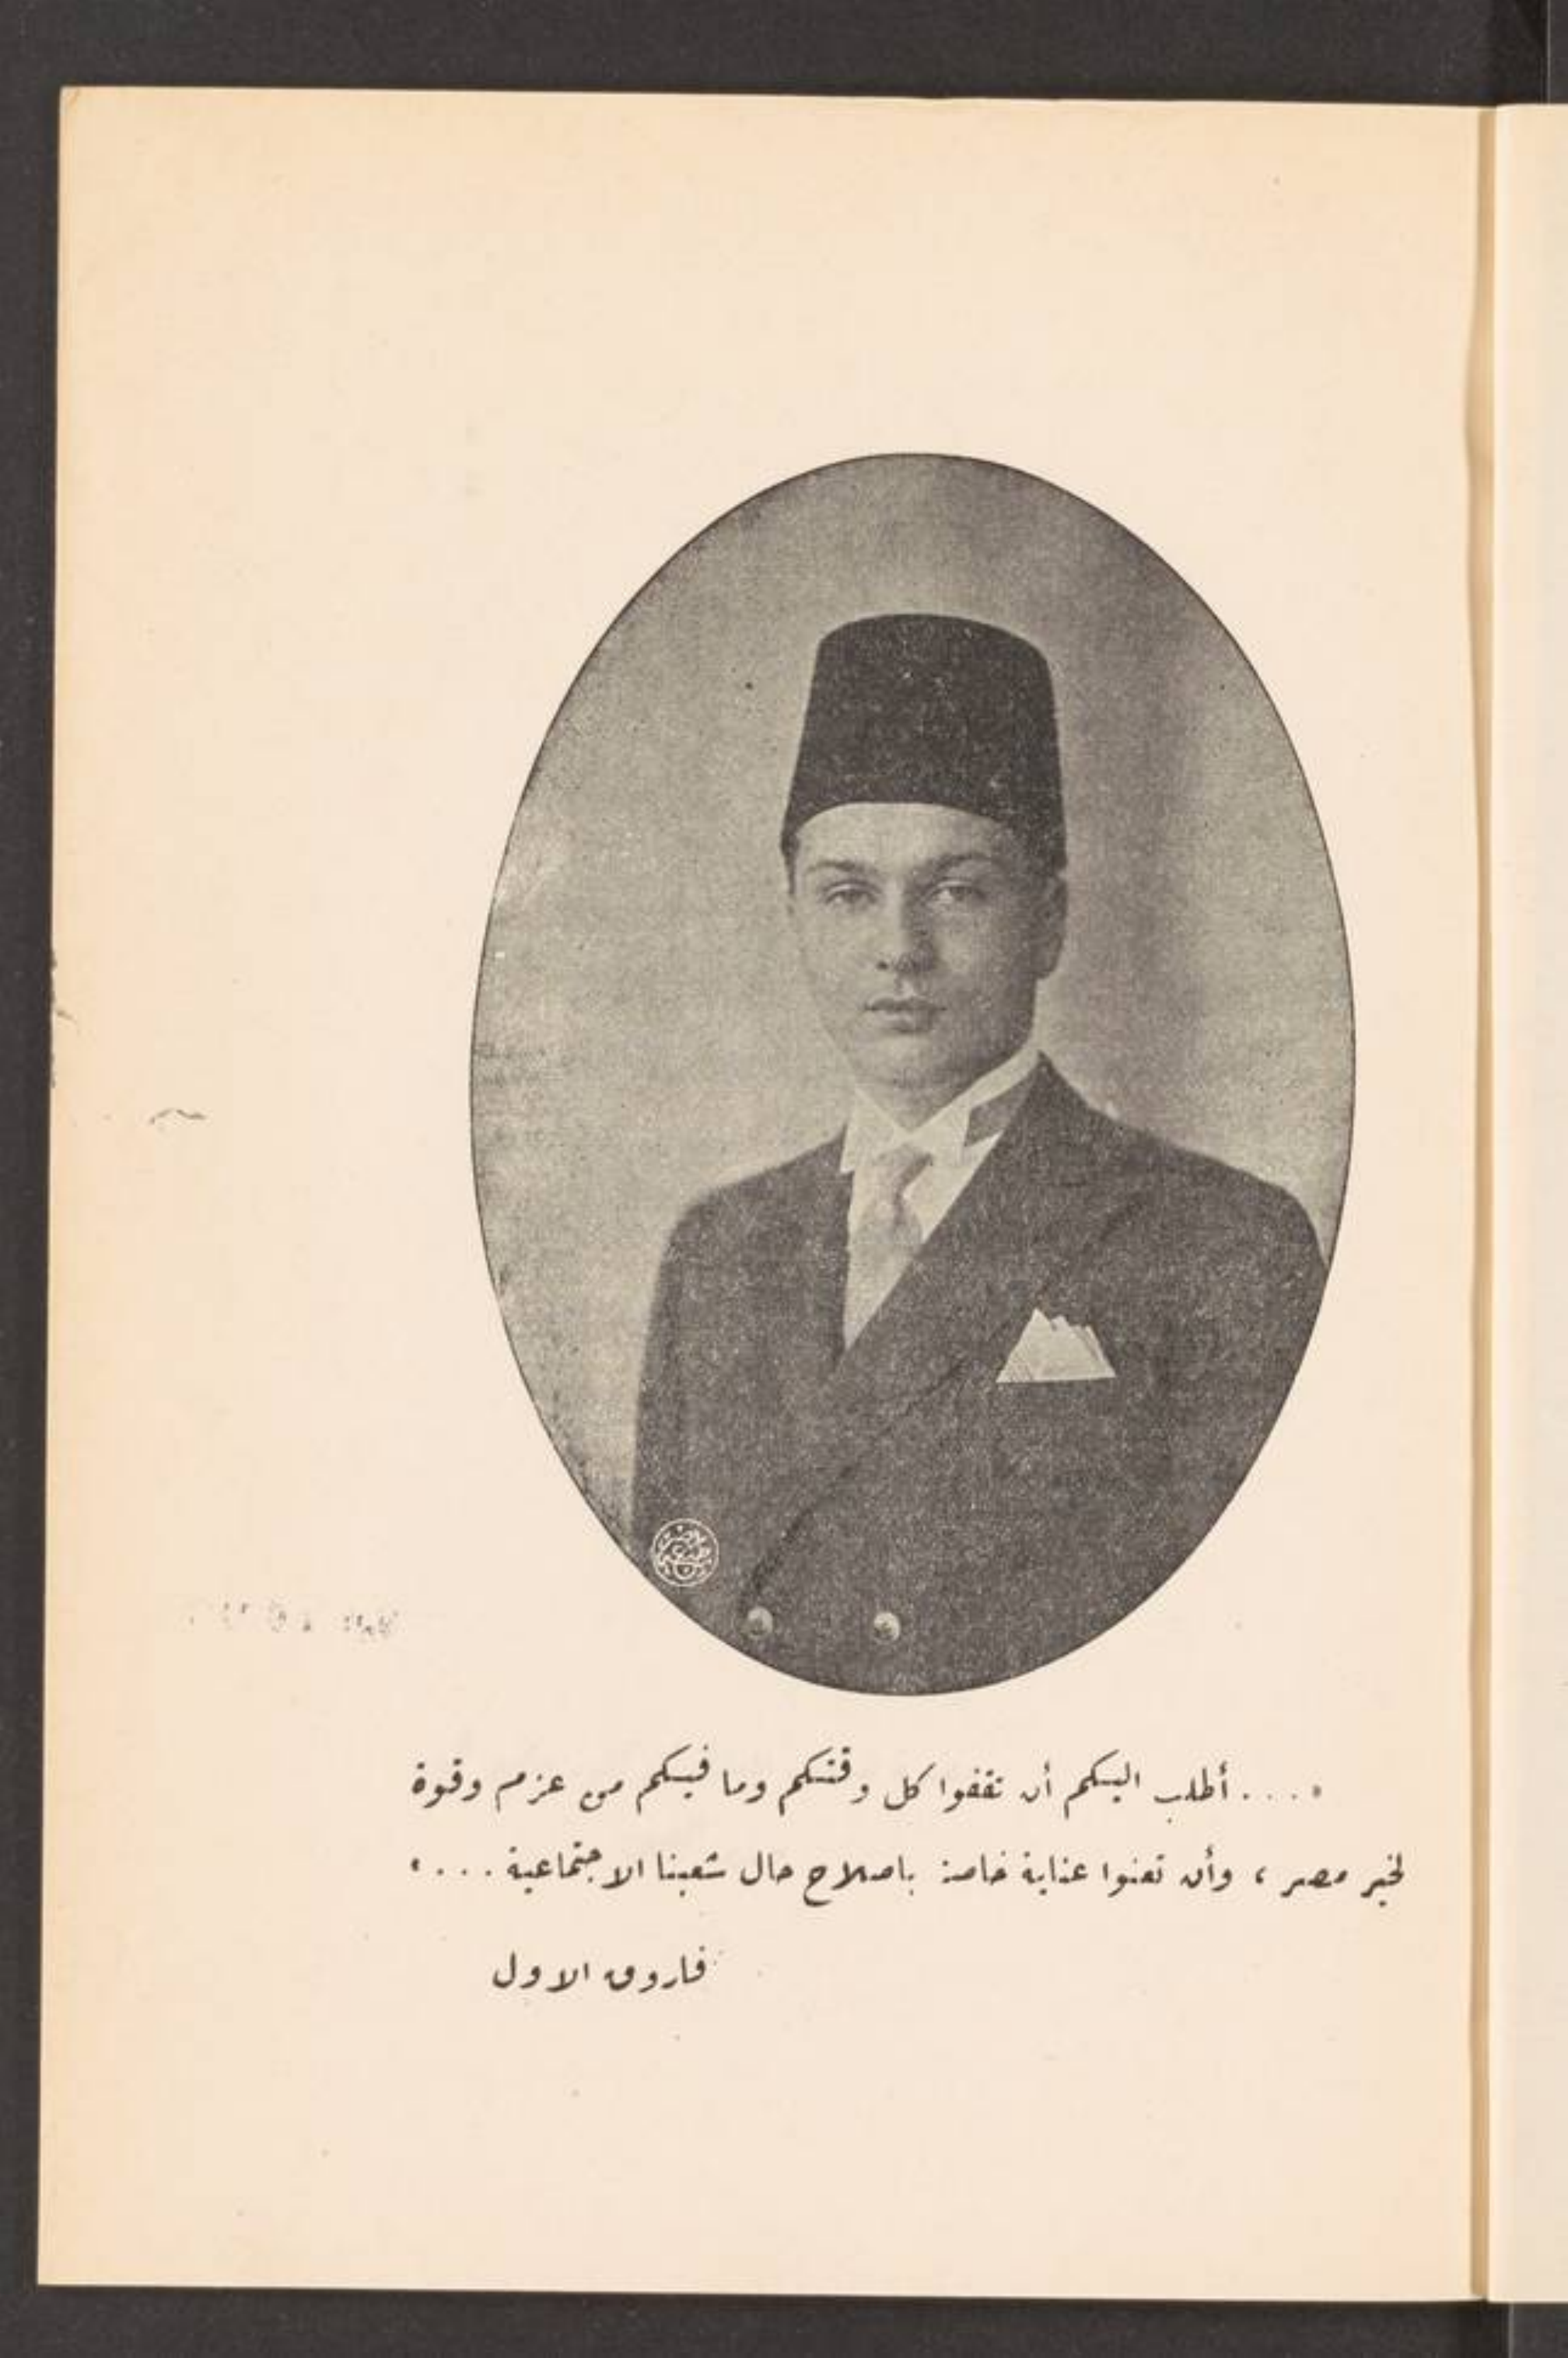 « .... أطلب اليكم أن تقفوا كل وقتكم وما فيكم من عزم وقوة
لخير مصر ، وأن تعنوا عناية خاصة باصلاح حال شعبنا الاجتماعية ... »
فاروق الاول